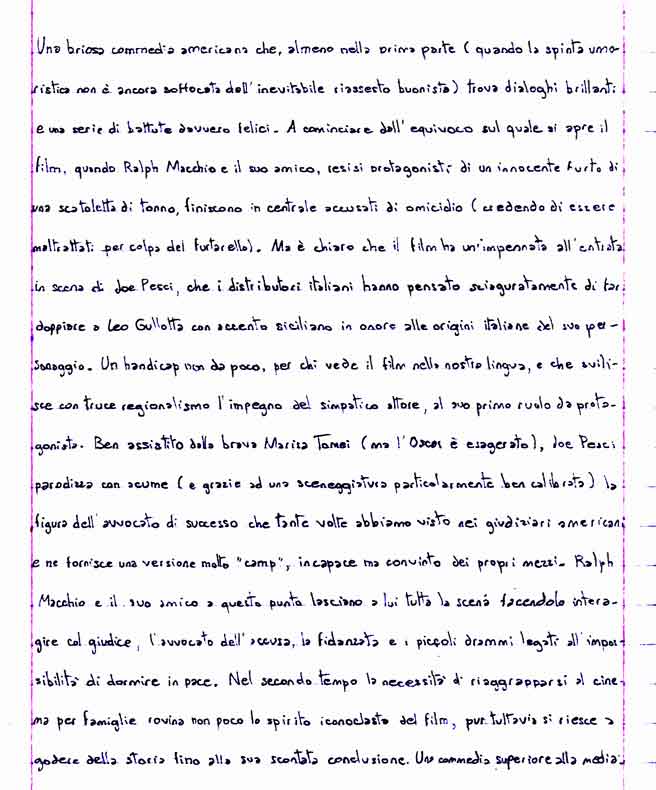 Una briosa commedia americana che, almeno nella prima parte (quando la spinta umo-
ristica non è ancora soffocata dall'inevitabile riassesto buonista) trova dialoghi brillanti
e una serie di battute davvero felici. A cominciare dall'equivoco sul quale si apre il
film, quando Ralph Macchio e il suo amico, resisi protagonisti di un innocente furto di
una scatoletta di tonno, finiscono in centrale accusati di omicidio (credendo di essere
maltrattati per colpa del furtarello). Ma è chiaro che il film ha un'impennata all'entrata
in scena di Joe Pesci, che i distributori italiani hanno pensato sciaguratamente di far
doppiare a Leo Gullotta con accento siciliano in onore alle origini italiane del suo per-
sonaggio. Un handicap non da poco, per chi vede il film nella nostra lingua, e che svili-
sce con truce regionalismo l'impegno del simpatico attore, al suo primo ruolo da prota-
gonista. Ben assistito dalla brava Marisa Tomei (ma l'Oscar è esagerato), Joe Pesci
parodizza con acume (e grazie ad una sceneggiatura particolarmente ben calibrata) la
figura dell'avvocato di successo che tante volte abbiamo visto nei giudiziari americani
e ne fornisce una versione molto "camp", incapace ma convinto dei propri mezzi. Ralph
Macchio e il suo amico a questo punto lasciano a lui tutta la scena facendolo intera-
gire col giudice, l'avvocato dell'accusa, la fidanzata e i piccoli drammi legati all'impos-
sibilità di dormire in pace. Nel secondo tempo la necessità di riaggrapparsi al cine-
ma per famiglie rovina non poco lo spirito iconoclasta del film, pur tuttavia si riesce a
godere della storia fino alla sua scontata conclusione. Una commedia superiore alla media.